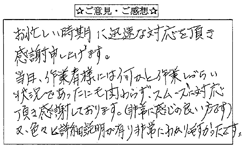 ☆ご意見・ご感想☆
お忙しい時期に迅速な対応を頂き
感謝申し上げます。
当日、作業者様には何かと作業しづらい
状況であったにも関わらず、スムーズに対応
頂き感謝しております。(非常に感じの良い方です)
又、色々と詳細説明が有り非常にわかりやすかったです。